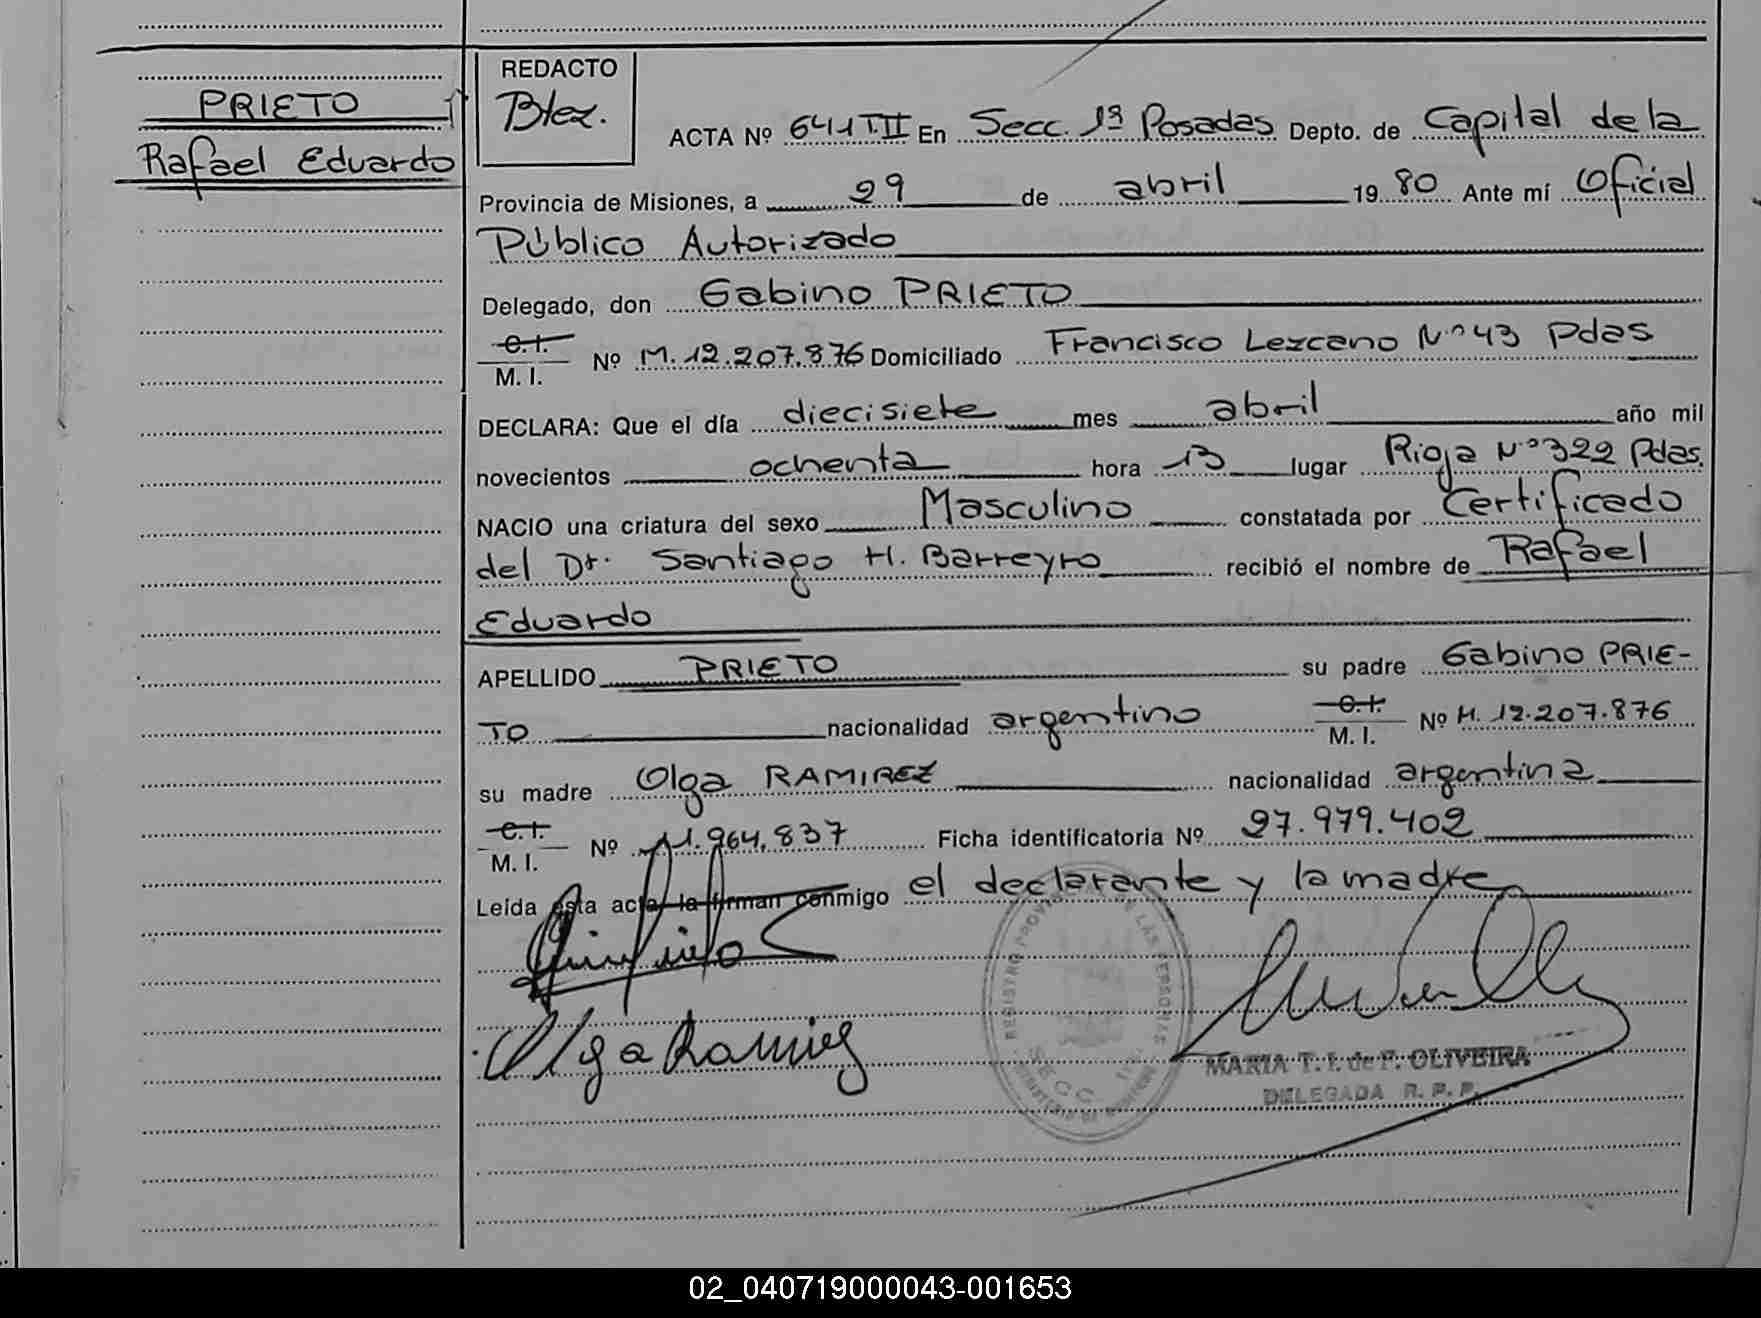 PRIETO
Rafael Eduardo
REDACTO
ACTA Nº 641 T.II En Secc. 1ª Posadas Depto. de Capital de la
Provincia de Misiones, a 29 de abril 1980 Ante mí Oficial
Público Autorizado
Delegado, don Gabino PRIETO
C.I.
M. I. Nº M. 12.207.876 Domiciliado Francisco Lezcano Nº 43 Pdas
DECLARA: Que el día diecisiete mes abril año mil
novecientos ochenta hora 13 lugar Rioja Nº 322 Pdas.
NACIO una criatura del sexo Masculino constatada por Certificado
del Dr. Santiago H. Barreyro recibió el nombre de Rafael
Eduardo
APELLIDO PRIETO su padre Gabino PRIE-
TO nacionalidad argentino C.I. M. I. Nº M. 12.207.876
su madre Olga RAMIREZ nacionalidad argentina
C.I.
M. I. Nº 11.964.837 Ficha identificatoria Nº 27.979.402
Leída esta acta la firman conmigo el declarante y la madre
Olga Ramirez
REGISTRO PROVINCIAL DE LAS PERSONAS
SECC. 1ra.
MARIA T. I. de F. OLIVEIRA
DELEGADA R. P. P.
02_040719000043-001653